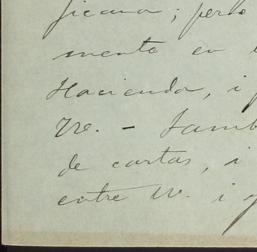 jicana; pero
mente en
Hacienda, i
W. - Tamb
de cartas, i
entre W. i y